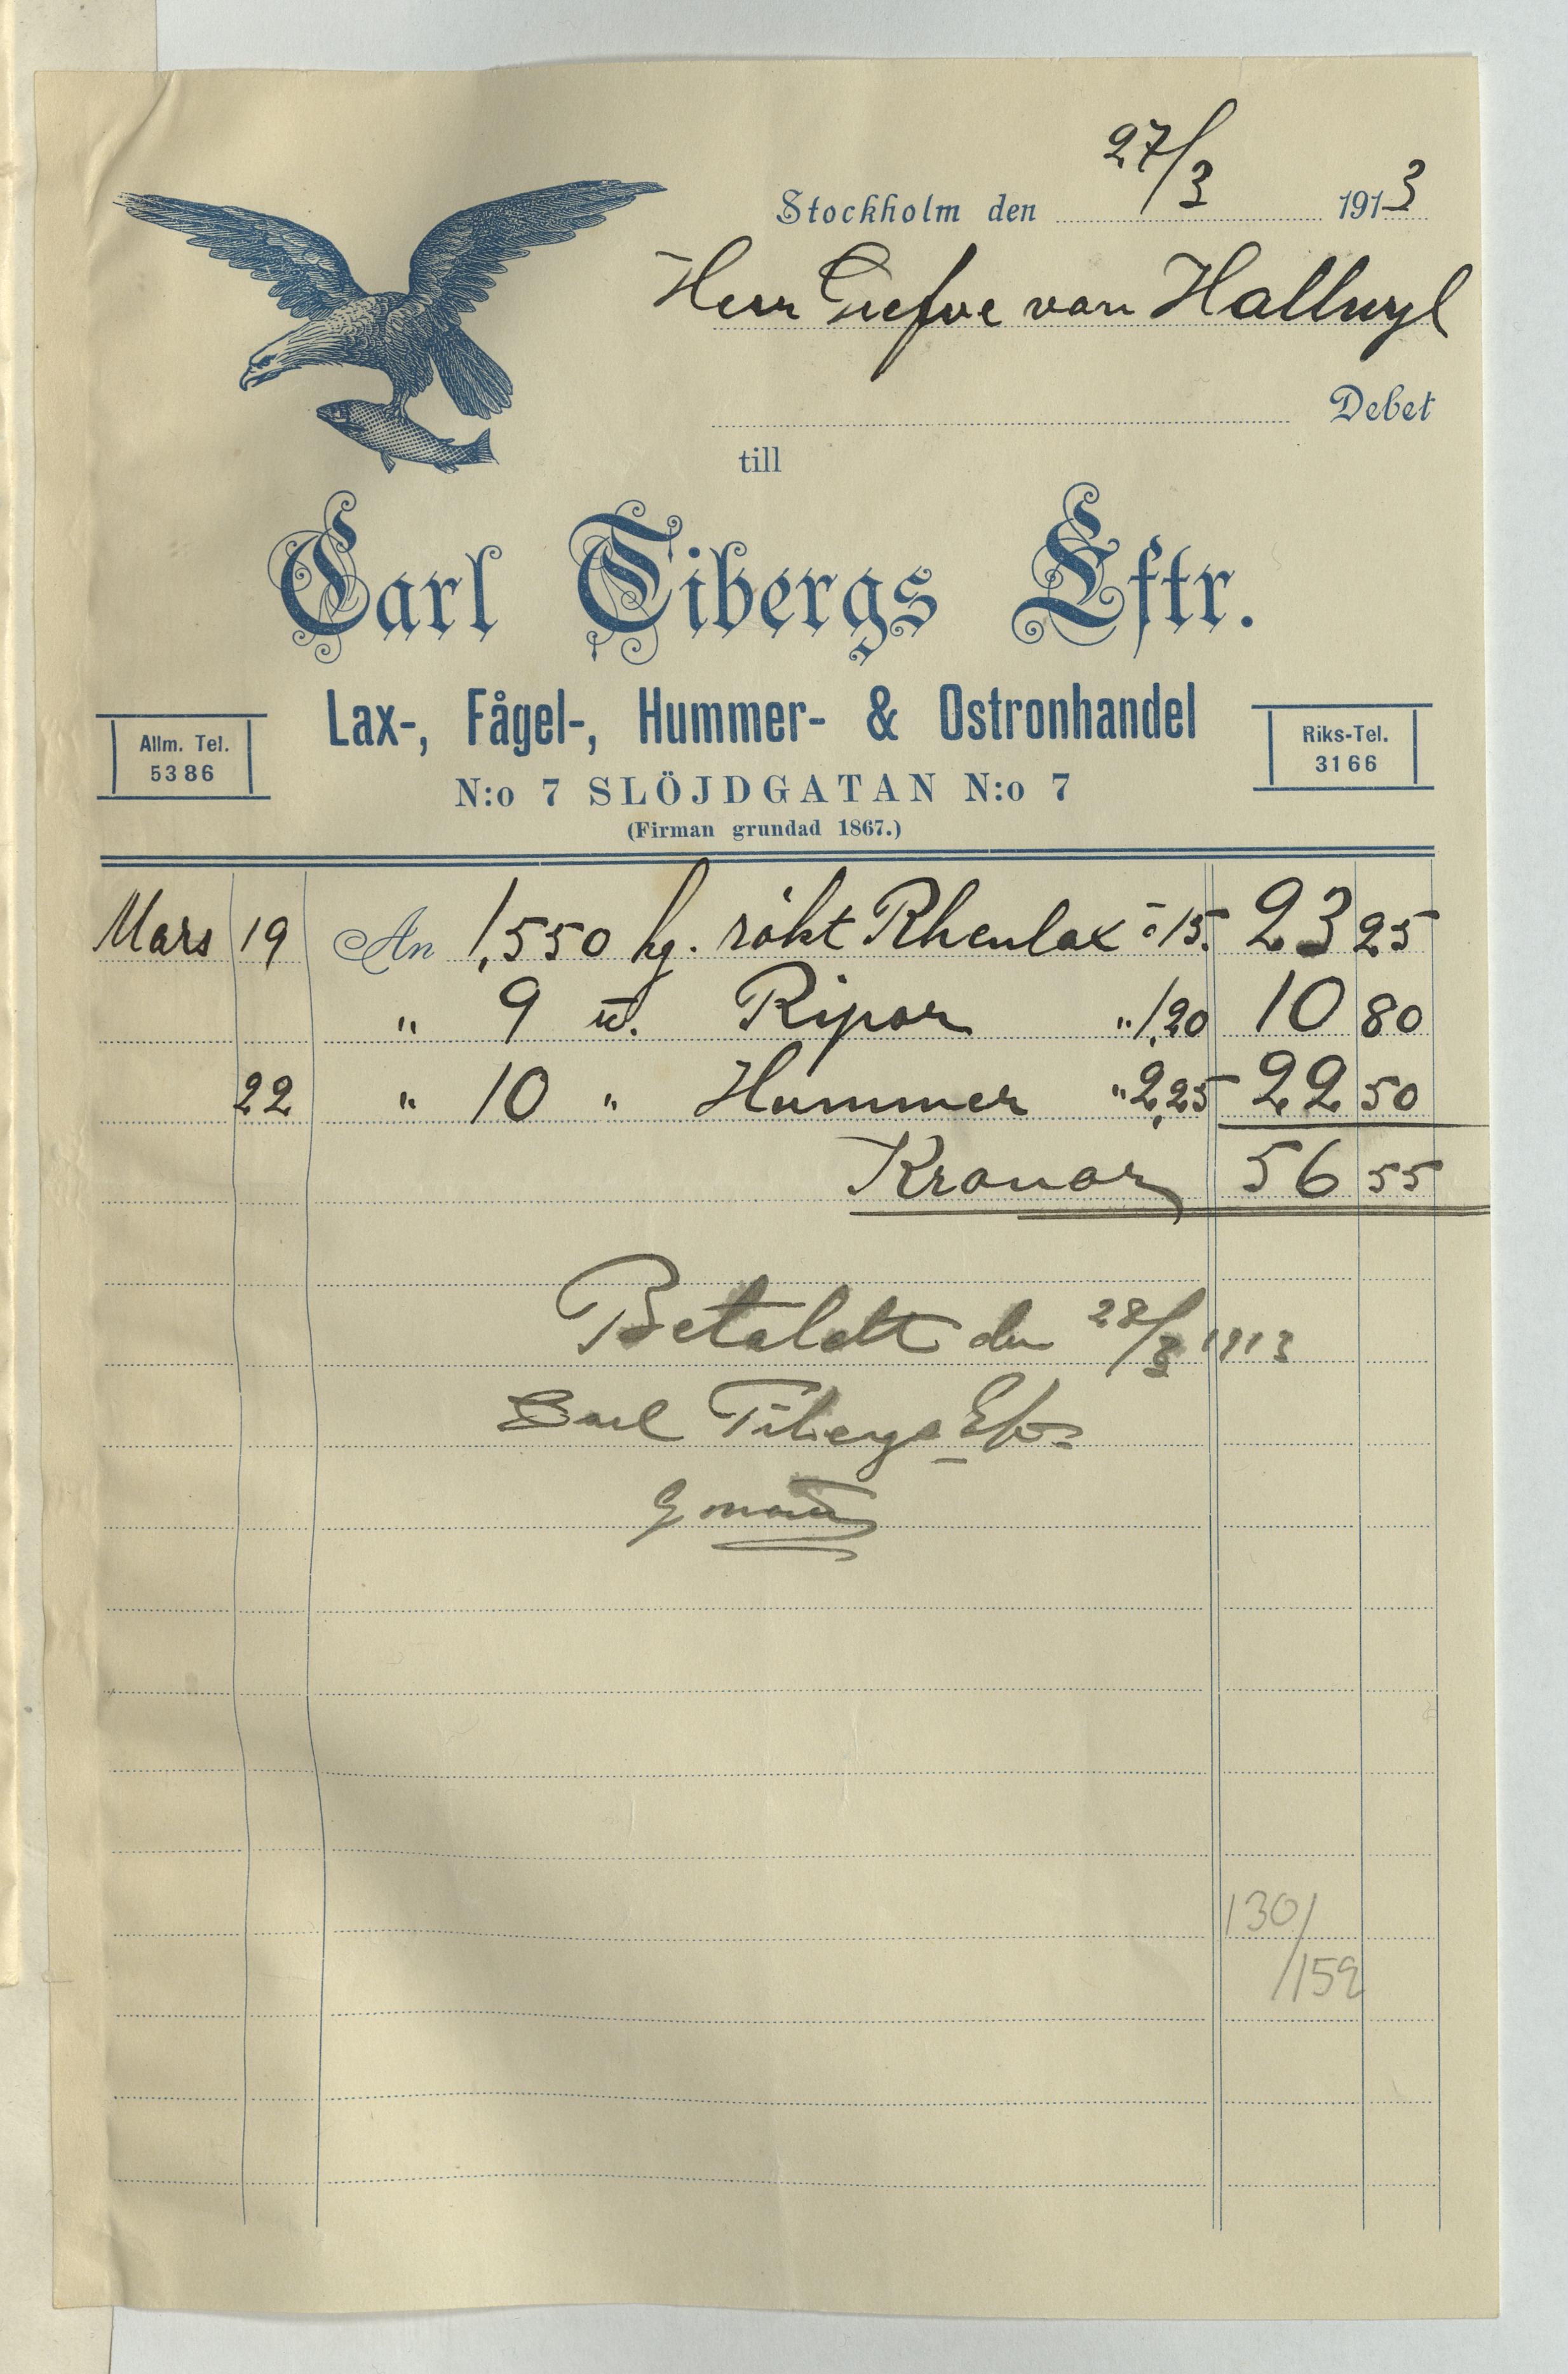 Stockholm den 27/3 1913
Herr Grefve von Hallwyl
Debet
till
Carl Tibergs Eftr.
Lax-, Fågel-, Hummer- & Ostronhandel
Allm. Tel. 5386
Riks-Tel. 3166
N:o 7 SLÖJDGATAN N:o 7
(Firman grundad 1867.)
Mars 19 An 1,550 kg. rökt Rhenlax à 15. 23 25
" 9 st. Ripor " 1,20 10 80
22 " 10 " Hummer " 2,25 22 50
Kronor 56 55
Betaldt den 28/3 1913
Carl Tibergs Eftr
130/159